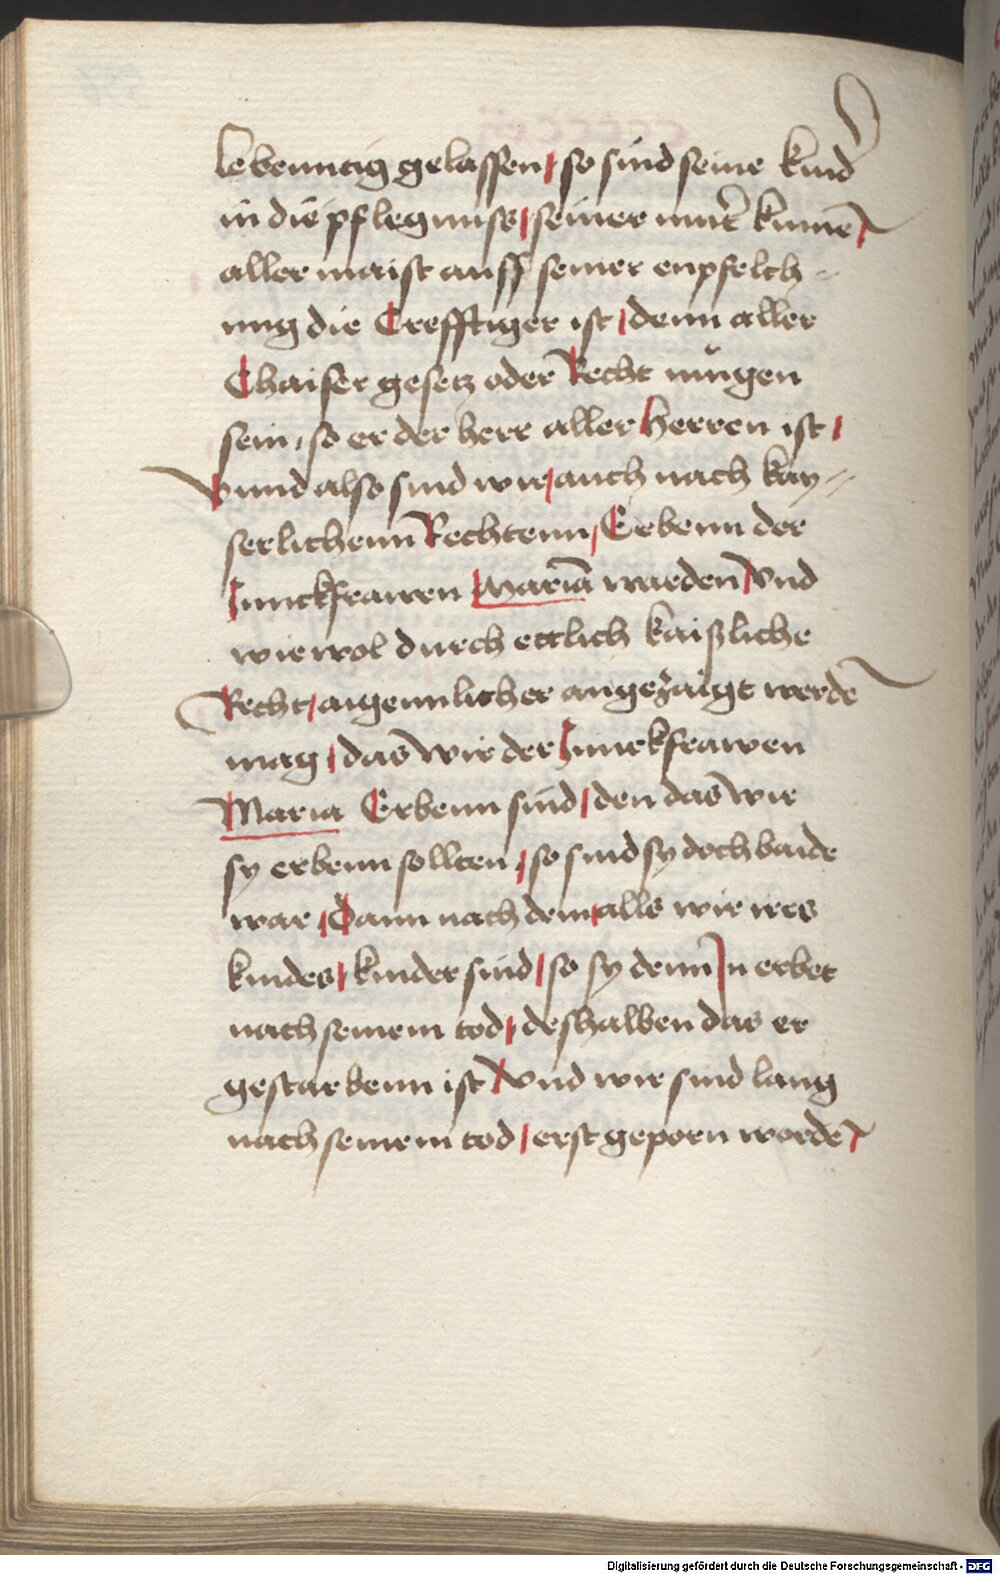 lebenntig gelassen / so sind seine kind
in die pflegnuss / seiner mut̄ kumē /
aller maist auff seiner enpfelch=
ung die Crefftiger ist / denn aller
Chaiser gesetz oder Recht mügen
sein / so er der herr aller herren ist /
Vnnd also sind wir / auch nach kay=
serlichenn Rechtenn / Erbenn der
Junckfrawen Mariā warden / Vnd
wiewol durch ettlich kaißliche
Recht / aigennlicher angezaigt werdē
mag / das wir der Junckfrawen
Maria Erbenn sind / den das wir
sy erbenn sollten / so sind sy doch baide
war / Dann nach dem / alls wir ires
kindes / kinder sind / so sy denn Jn erbet
nach seinem tod / deshalben das er
gestarbenn ist / Vnd wir sind lang
nach seinem tod / erst geporn wordē /
Digitalisierung gefördert durch die Deutsche Forschungsgemeinschaft - DFG